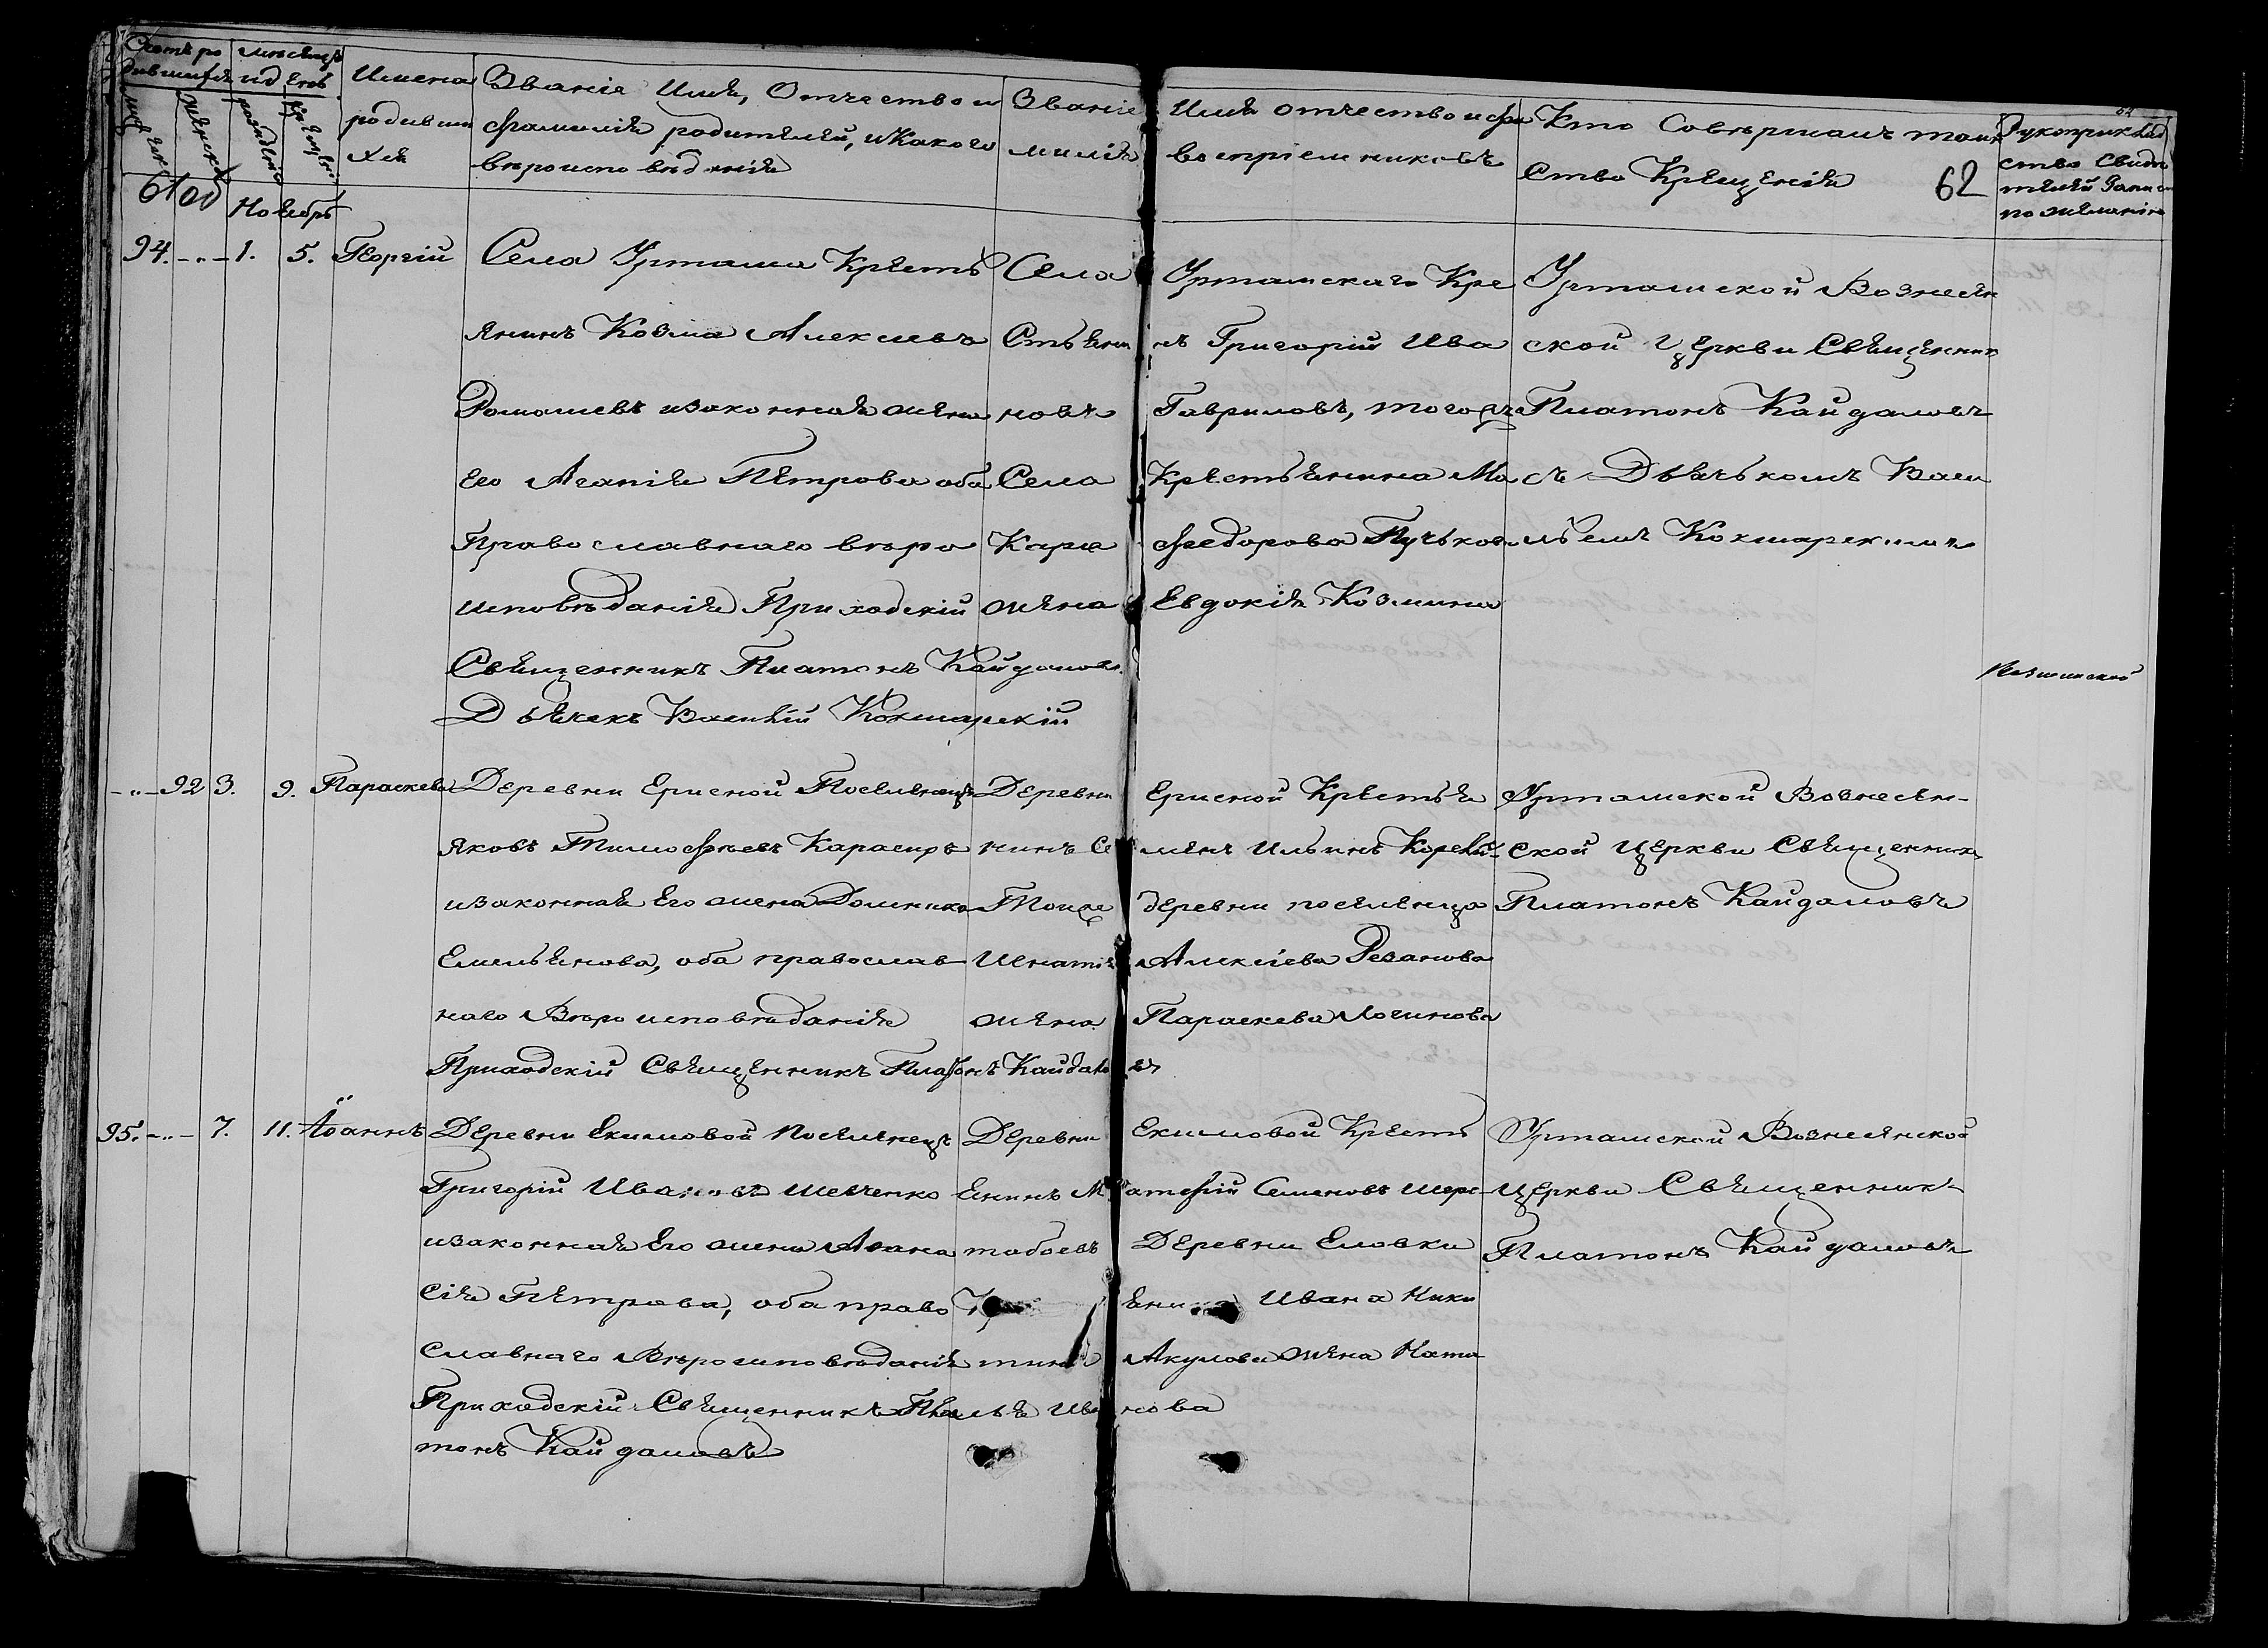 Счетъ ро
дившихся
мужеск
женск
мѣсяцъ
и день
рожденія
крещенія
Имена
родивши
хся
Званіе Имя, Отчество и
фамилія родителей, и какого
вѣроисповѣданія
Званіе Имя отчество и фа
милія воспріемниковъ
Кто Совершалъ таин
Ство Крещенія
62
Рукоприклад
ство Свидѣ
телей Записи
по желанію
61 об
Ноябрь
94. -"- 1. 5. Георгій
Села Уртама Кресть
янинъ Козма Алексѣевъ
Ромашевъ и законная жена
его Агапія Петрова оба
Православнаго вѣро
исповѣданія Приходскій
Священникъ Платонъ Кайдаловъ
Дьячекъ Василій Кокшарскій
Села Уртамскаго Кре
Стьянинъ Григорій Ива
новъ Гавриловъ, тогожъ
Села Крестьянина Ма
Карa Федорова Пучькова
жена Евдокія Козмина
Уртамской Вознесен
ской Церкви Священник
Платонъ Кайдаловъ
съ Дьячькомъ Васи
льемъ Кокшарскимъ
-"- 92 3. 9. Параскева
Деревни Ериской Поселенецъ
Яковъ Тимофѣевъ Карасиръ
и законная Его жена Домника
Емельянова, оба православ
наго Вѣроисповѣданія
Приходскій Священникъ Платонъ Кайдаловъ
Деревни Ериской Крестья
нинъ Се менъ Ильинъ Коревин
Тойже деревни поселенца
Игнатія Алексіева Резанова
жена Параскева Логинова
Уртамской Вознесен-
ской Церкви Священникъ
Платонъ Кайдаловъ
95. -"- 7. 11. Іоаннъ
Деревни Екимовой поселенецъ
Григорій Ивановъ Шевченко
и законная Его жена Афана
сія Петрова, оба право
славнаго Вѣроисповѣданія
Приходскій Священникъ Пла
тонъ Кайдаловъ
Деревни Екимовой Кресть
Янинъ Матфій Семеновъ Шере
тобоевъ Деревни Еловки
Ивана Ники
тина Акулова жена Ната
лья Иванова
Уртамской Вознесенской
Церкви Священникъ
Платонъ Кайдаловъ